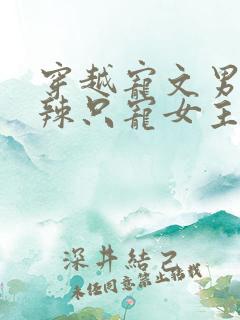 穿越寵文男
辣只寵女主
深井結己
未任同意禁止轉載